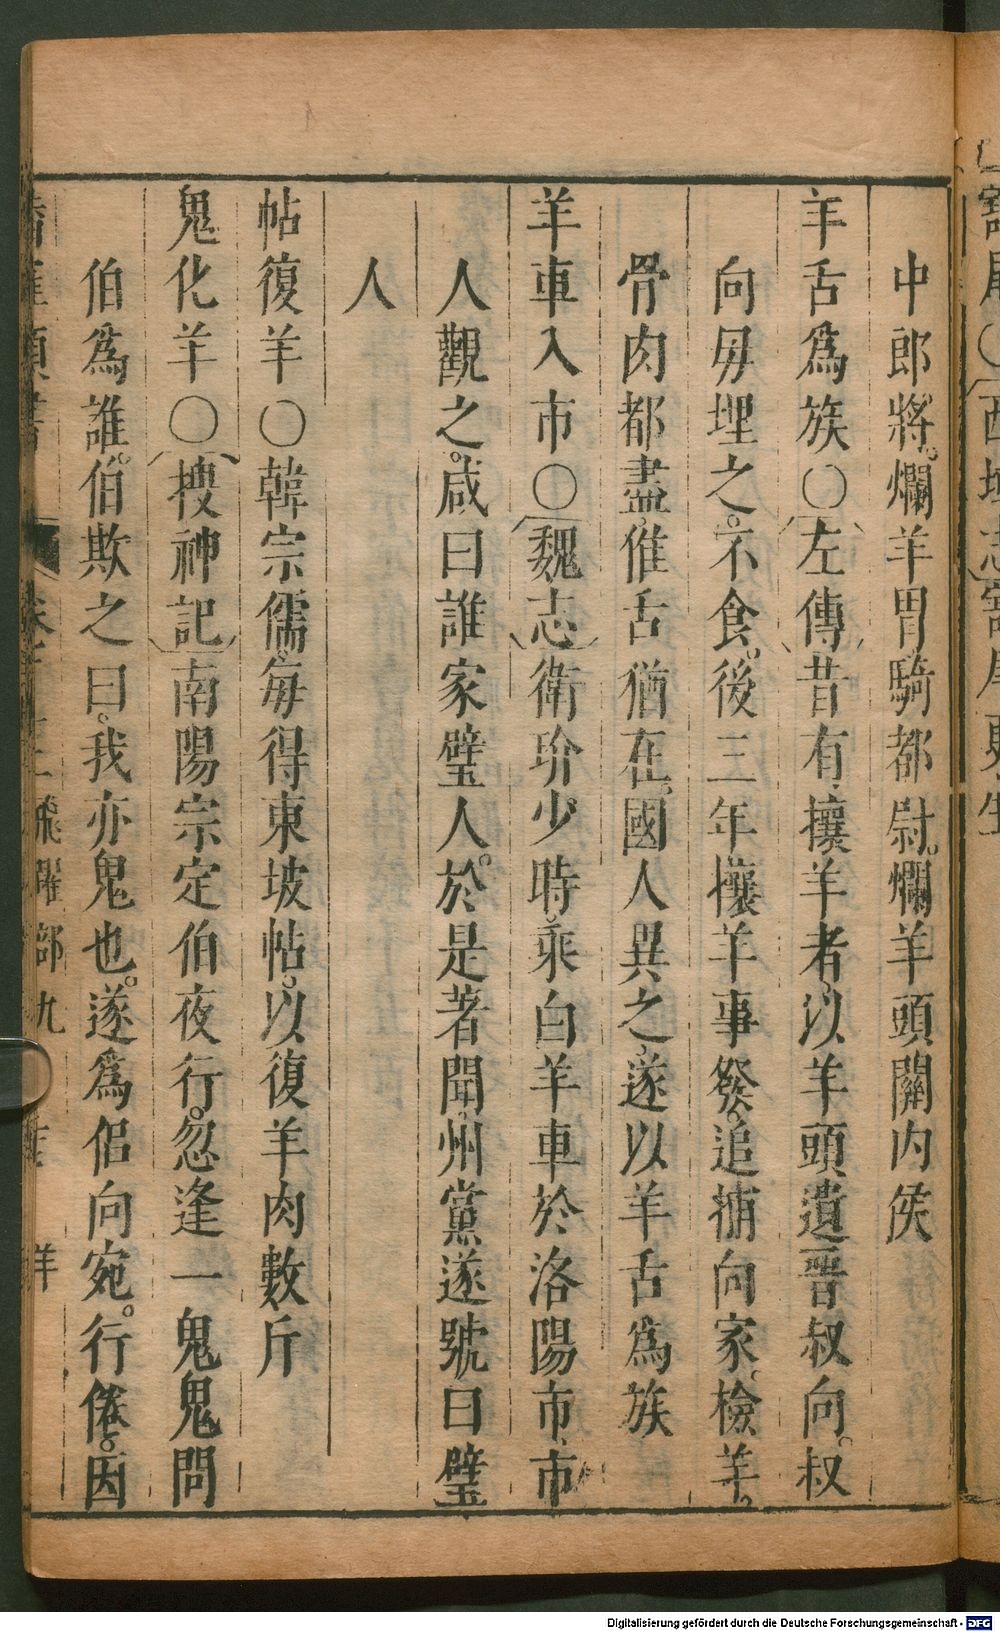 中郎將。爛羊胃騎都尉。爛羊頭關内侯
羊舌爲族〇左傳昔有攘羊者。以羊頭遺晉叔向。叔
向毋埋之。不食。後三年攘羊事發。追捕向家。檢羊。
骨肉都盡。惟舌猶在。國人異之。遂以羊舌爲族
羊車入市〇魏志衛玠少時。乘白羊車於洛陽市。市
人觀之。咸曰誰家璧人。於是著聞。州黨遂號曰璧
人
帖復羊〇韓宗儒。每得東坡帖。以復羊肉數斤
鬼化羊〇搜神記南陽宗定伯夜行。忽逢一鬼鬼問
伯爲誰。伯欺之曰。我亦鬼也。遂爲侣向宛。行倦。因
飛躍部九
羊
Digitalisierung gefördert durch die Deutsche Forschungsgemeinschaft - DFG